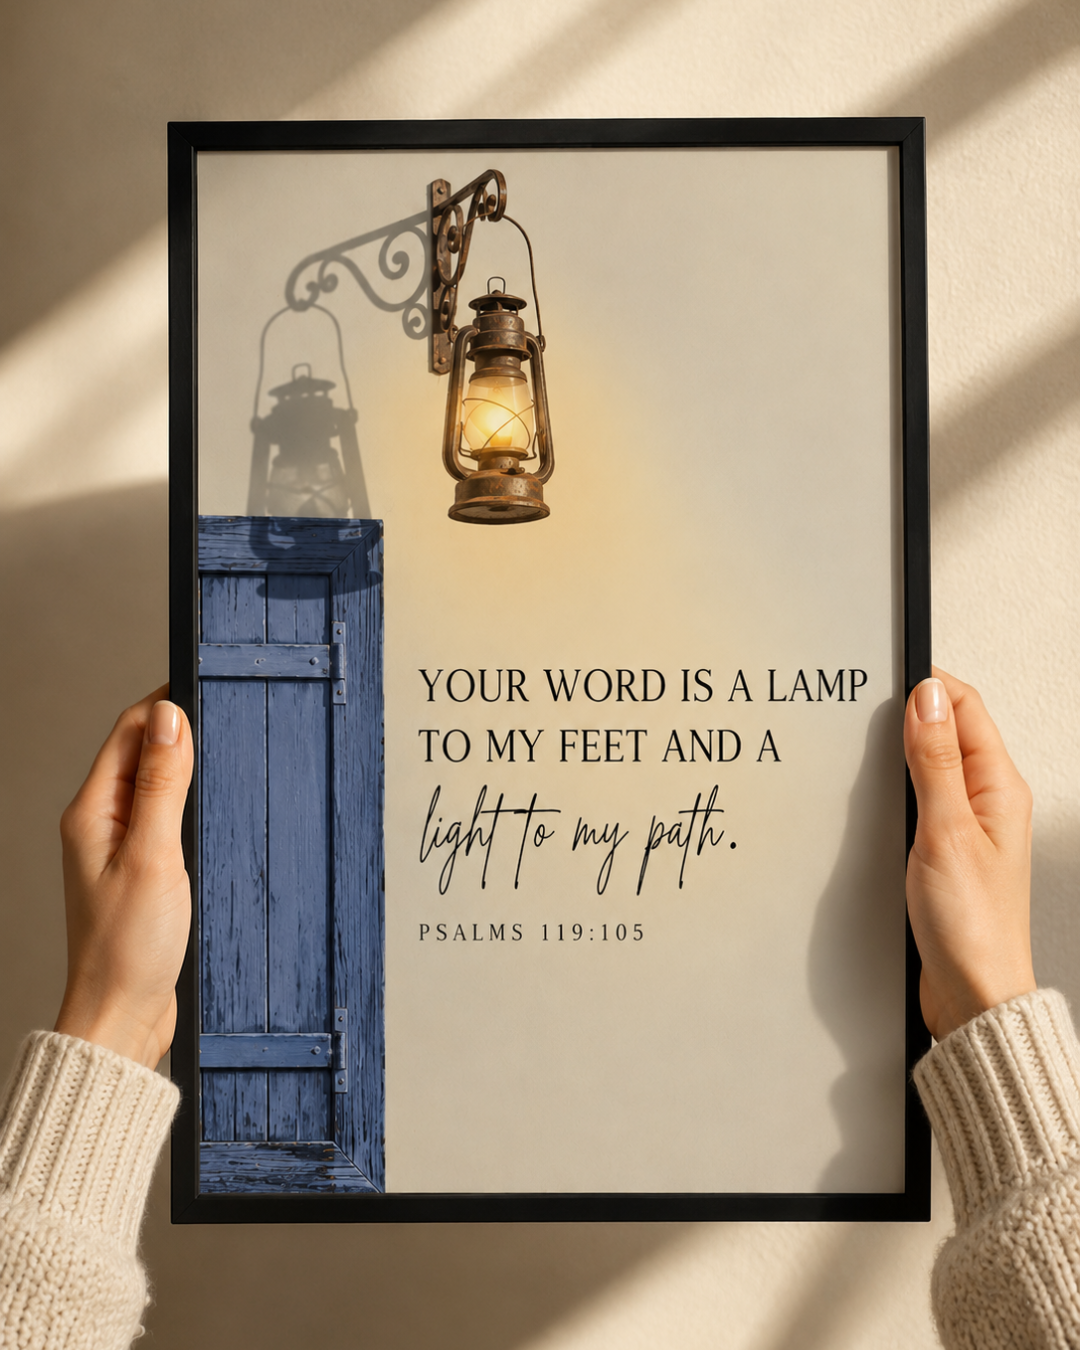 YOUR WORD IS A LAMP
TO MY FEET AND A
light to my path.
PSALMS 119:105